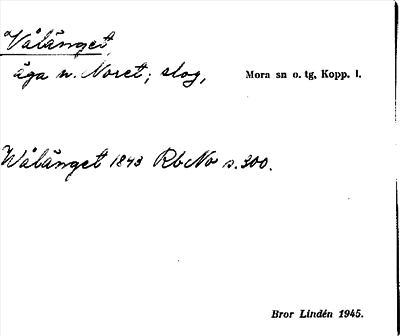 Vålänget,
äga n. Noret; slog,
Mora sn o. tg, Kopp. l.
Wålänget 1843 RbNo s. 300.
Bror Lindén 1945.